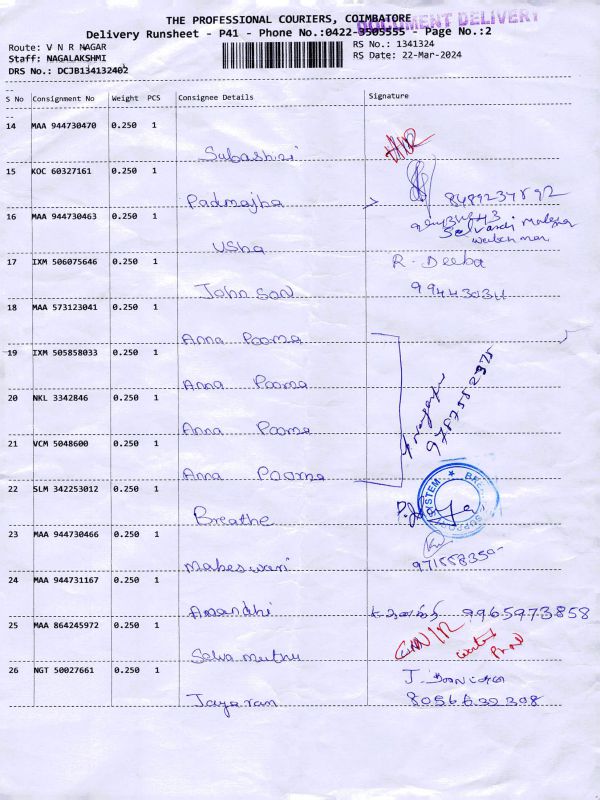 THE PROFESSIONAL COURIERS, COIMBATORE
DOCUMENT DELIVERY
Delivery Runsheet - P41 - Phone No.:0422-3505555 - Page No.:2
Route: V N R NAGAR
RS No.: 1341324
Staff: NAGALAKSHMI
RS Date: 22-Mar-2024
DRS No.: DCJB134132402
S No Consignment No Weight PCS Consignee Details Signature
14 MAA 944730470 0.250 1
Subashri
15 KOC 60327161 0.250 1
Padmajha 8489234892
16 MAA 944730463 0.250 1
Usha
17 IXM 506075646 0.250 1 R. Deeba
Johnson 99443034
18 MAA 573123041 0.250 1
Anna Poorna
19 IXM 505858033 0.250 1
Anna Poorna
20 NKL 3342846 0.250 1
Anna Poorna
21 VCM 5048600 0.250 1
Anna Poorna
22 SLM 342253012 0.250 1
SYSTEM
Breathe
23 MAA 944730466 0.250 1
Maheswari
24 MAA 944731167 0.250 1
Anandhi 9965973858
25 MAA 864245972 0.250 1
Selva muthu
26 NGT 50027661 0.250 1
Jayaram 8056632308